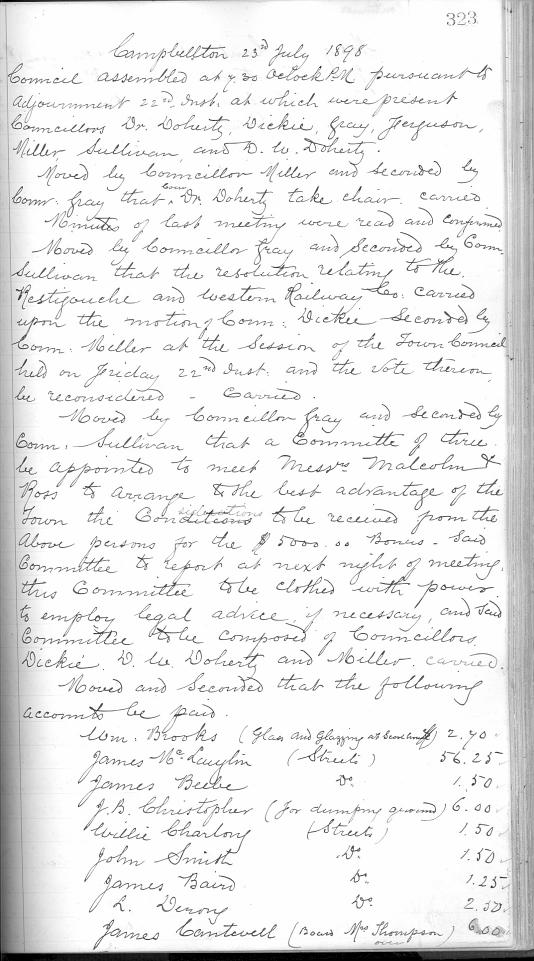 323
Campbellton 23rd July 1898
Council assembled at 7.30 Oclock P.M. pursuant to
Adjournment 22nd Inst. at which were present
Councillors Dr. Doherty, Dickie, Gray, Ferguson,
Miller, Sullivan, and D. W. Doherty.
Moved by Councillor Miller and Seconded by
Counr. Gray that Coun Dr. Doherty take chair. carried
Minutes of last meeting were read and confirmed
Moved by Councillor Gray and Seconded by Coun.
Sullivan that the resolution relating to the
Restigouche and Western Railway Co: carried
upon the motion of Coun: Dickie Seconded by
Coun: Miller at the Session of the Town Council
held on Friday 22nd Inst: and the vote thereon,
be reconsidered - Carried.
Moved by Councillor Gray and Seconded by
Coun. Sullivan that a Committe of three
be appointed to meet Messrs Malcolm &
Ross to arrange to the best advantage of the
Town the Conditions to be received from the
above persons for the $5000.00 Bonus - Said
Committee to report at next night of meeting,
this Committee to be clothed with power
to employ legal advice if necessary, and Said
Committee to be composed of Councillors
Dickie, D. W. Doherty and Miller. carried.
Moved and Seconded that the following
accounts be paid.
Wm. Brooks (Glass and Glazzing at) 2.70
James McLauglin (Streets) 56.25
James Beebe Do 1.50
J.B. Christopher (For dumping ground) 6.00
Willie Charlong (Streets) 1.50
John Smith Do 1.50
James Baird Do 1.25
L. Do 2.50
James Cantwell (Board Mrs Thompson) 6.00
over